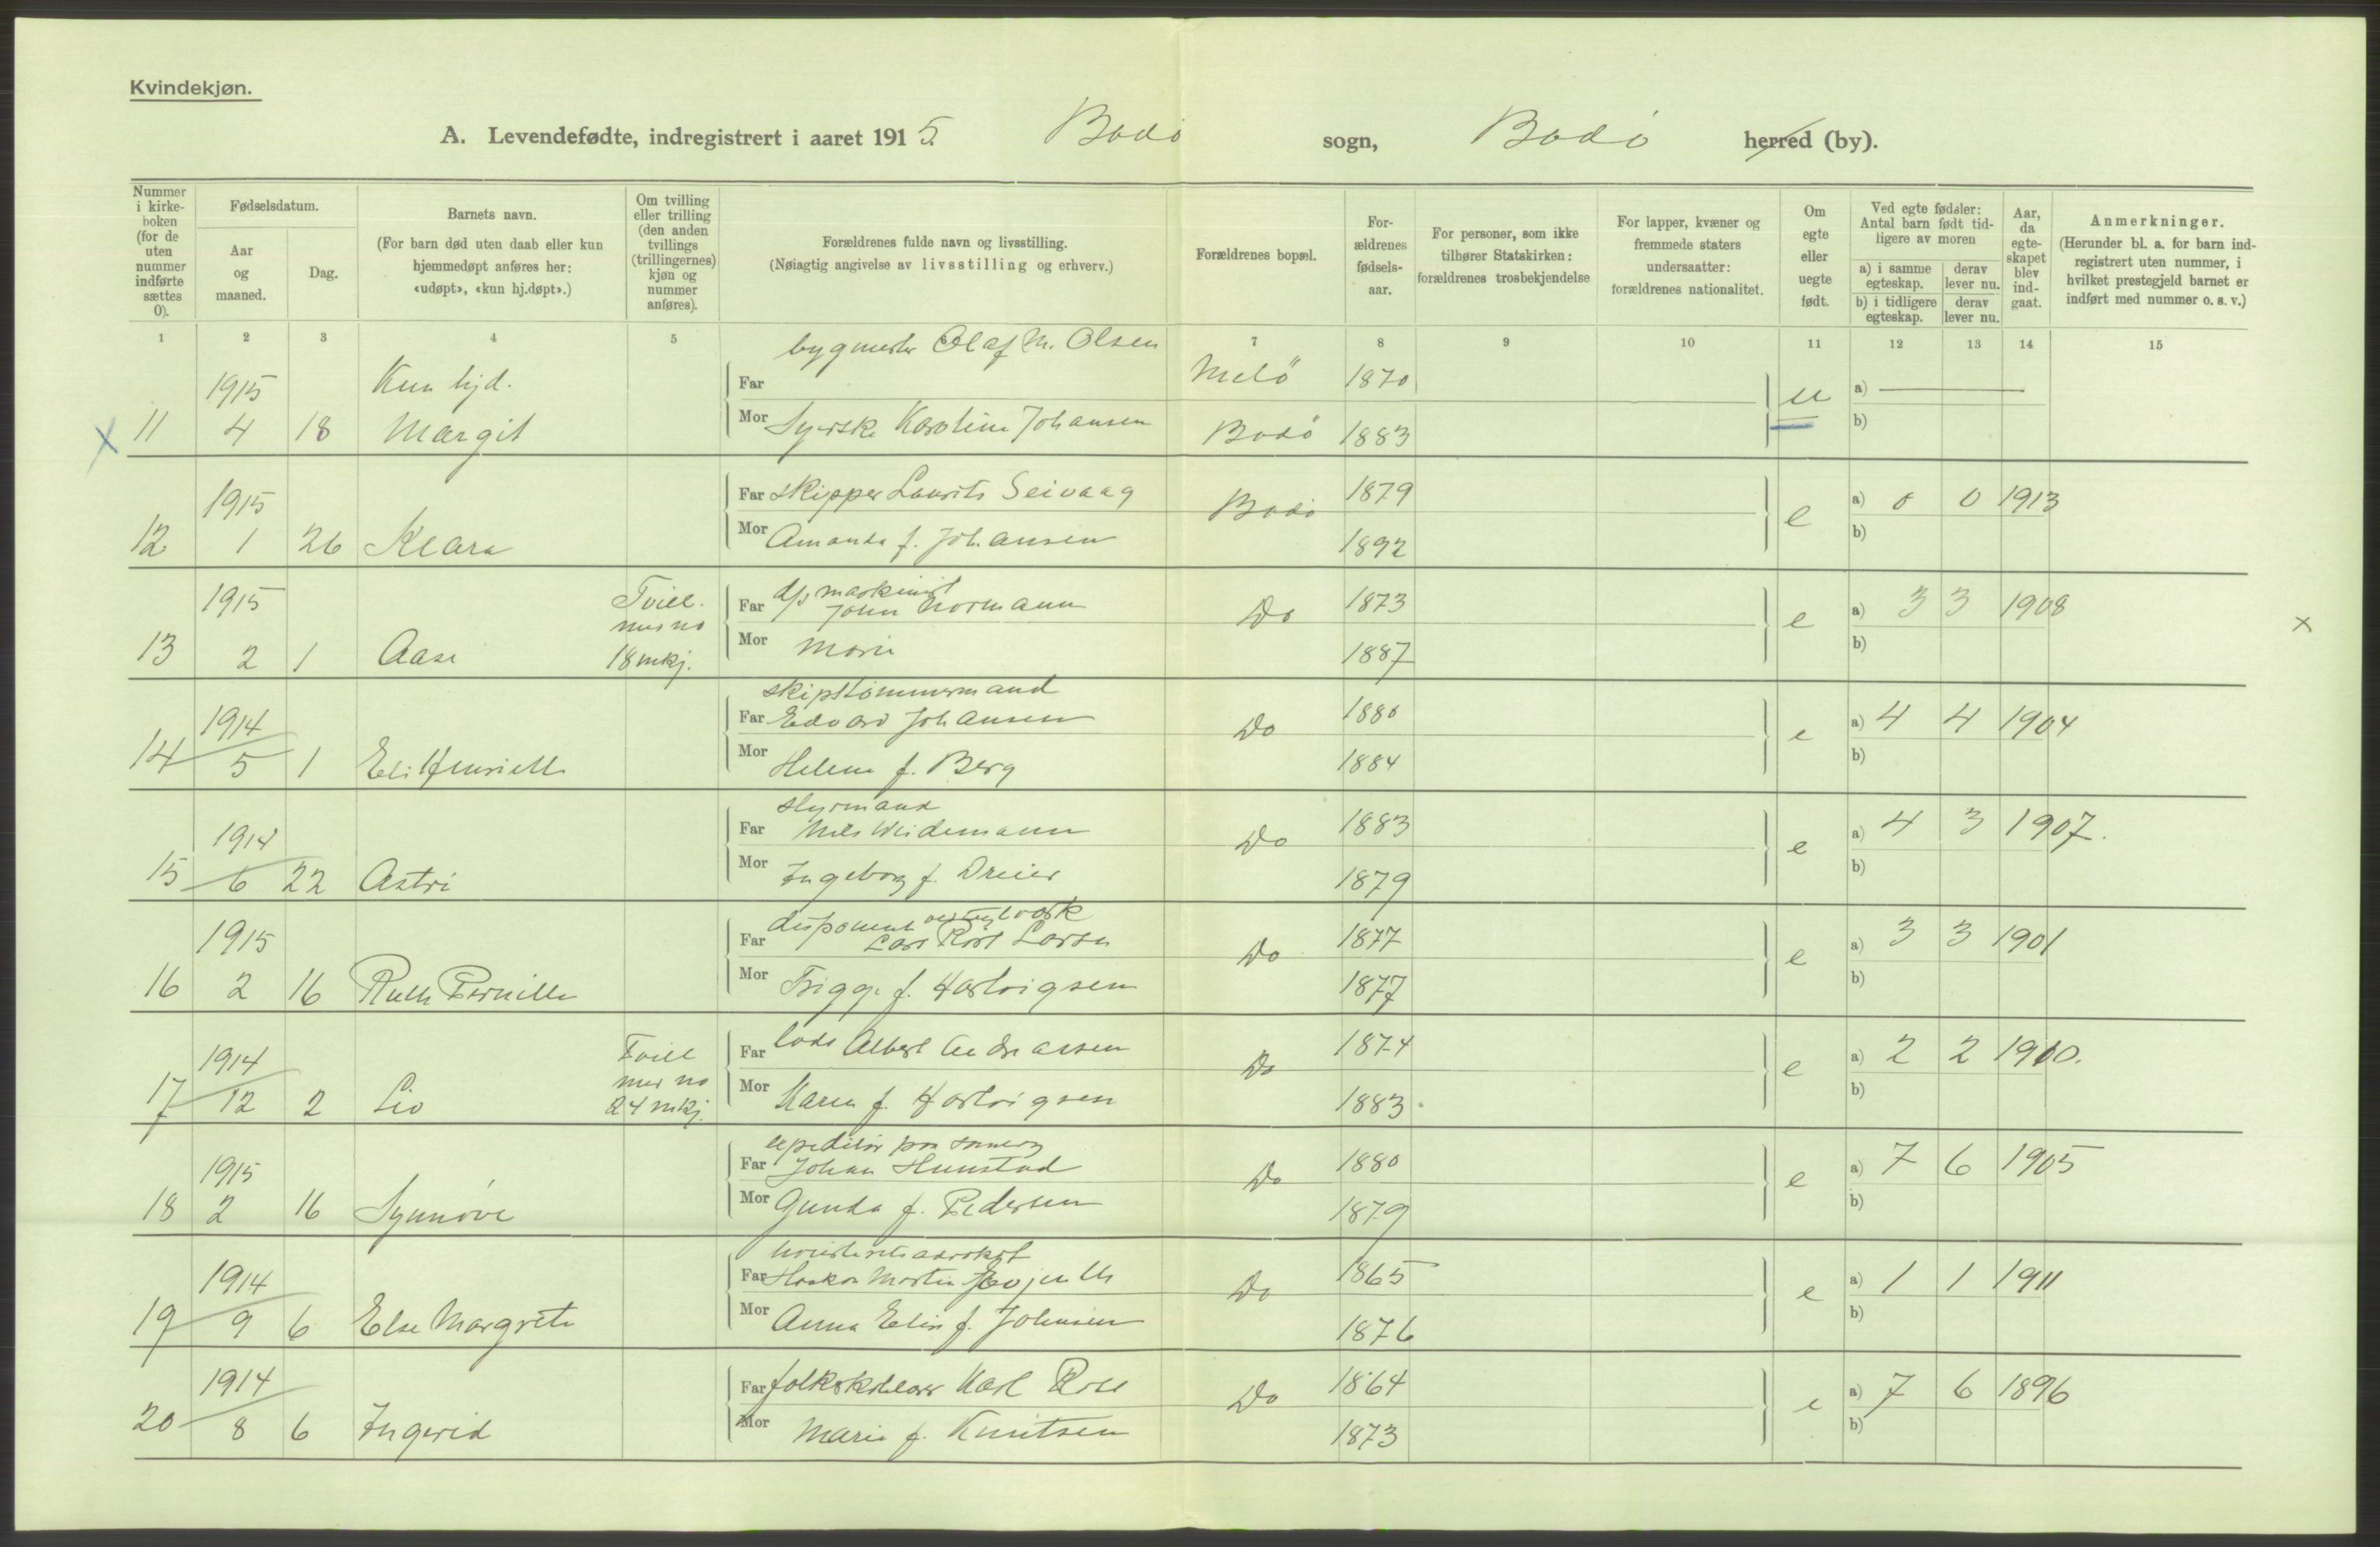 Kvindekjøn.
A. Levendefødte, indregistrert i aaret 1915. Bodø sogn, Bodø herred (by).
Nummer i kirke-boken (for de uten nummer indførte sættes 0).
Fødselsdatum.
Aar og maaned.
Dag.
Barnets navn.
(For barn død uten daab eller kun hjemmedøpt anføres her: «udøpt», «kun hj.døpt».)
Om tvilling eller trilling (den anden tvillings (trillingernes) kjøn og nummer anføres).
Forældrenes fulde navn og livsstilling.
(Nøiagtig angivelse av livsstilling og erhverv.)
Forældrenes bopæl.
For-ældrenes fødsels-aar.
For personer, som ikke tilhører Statskirken: forældrenes trosbekjendelse
For lapper, kvæner og fremmede staters undersaatter: forældrenes nationalitet.
Om egte eller uegte født.
Ved egte fødsler: Antal barn født tid-ligere av moren
a) i samme egteskap.
derav lever nu.
b) i tidligere egteskap.
derav lever nu.
Aar, da egte-skapet blev ind-gaat.
Anmerkninger.
(Herunder bl. a. for barn ind-registrert uten nummer, i hvilket prestegjeld barnet er indført med nummer o. s. v.)
1 2 3 4 5 7 8 9 10 11 12 13 14 15
bygmester Olaf M. Olsen
1915 Kun hjd. Far Melö 1870 u a)
x 11 4 18 Margit Mor Syerske Karoline Johansen Bodø 1883 b)
1915 Far skipper Laurits Seivaag Bodø 1879 e a) 0 0 1913
12 1 26 Klara Mor Amanda f. Johansen 1892 b)
1915 Tvill. Far d/s maskinist John Normann Do 1873 e a) 3 3 1908 x
med no
13 2 1 Aase 18 mkj. Mor Marie 1887 b)
skipstømmermand
1914 Far Edvard Johansen Do 1880 e a) 4 4 1904
14 5 1 Eli Henriette Mor Helene f. Berg 1884 b)
styrmand
1914 Far Nils Weidemann Do 1883 e a) 4 3 1907.
15 6 22 Astri Mor Ingeborg f. Dreier 1879 b)
disponent
1915 Far Lars Larsen Do 1877 e a) 3 3 1901
16 2 16 Ruth Pernille Mor Trigge f. Hartvigsen 1877 b)
1914 Tvill Far lods Albert Andreassen Do 1874 e a) 2 2 1910.
med no
17 12 2 Liv 24 mkj. Mor Karen f. Hartvigsen 1883. b)
expeditør paa
1915 Far Johan Hunstad Do 1880 e a) 7 6 1905
18 2 16 Synnöve Mor Gunda f. Pedersen 1879 b)
1914 Far Haakon Martin Evjenth Do 1865 e a) 1 1 1911
19 9 6 Else Margrete Mor Anna Elise f. Johnsen 1876 b)
1914 Far folkeskolelærer Karl Rose Do 1864 e a) 7 6 1896
20 8 6 Ingerid Mor Marie f. Knutsen 1873 b)